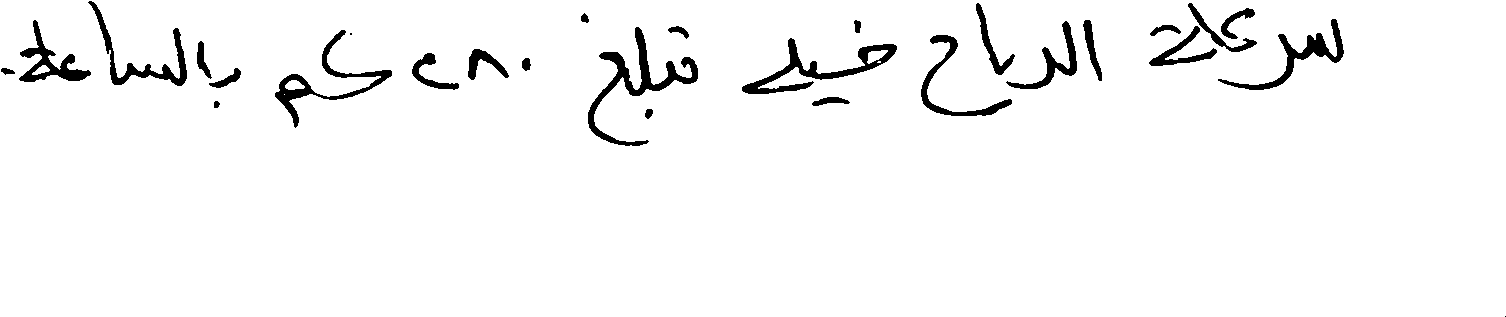 سرعة الرياح فيه تبلغ ٢٨٠ كم بالساعة.